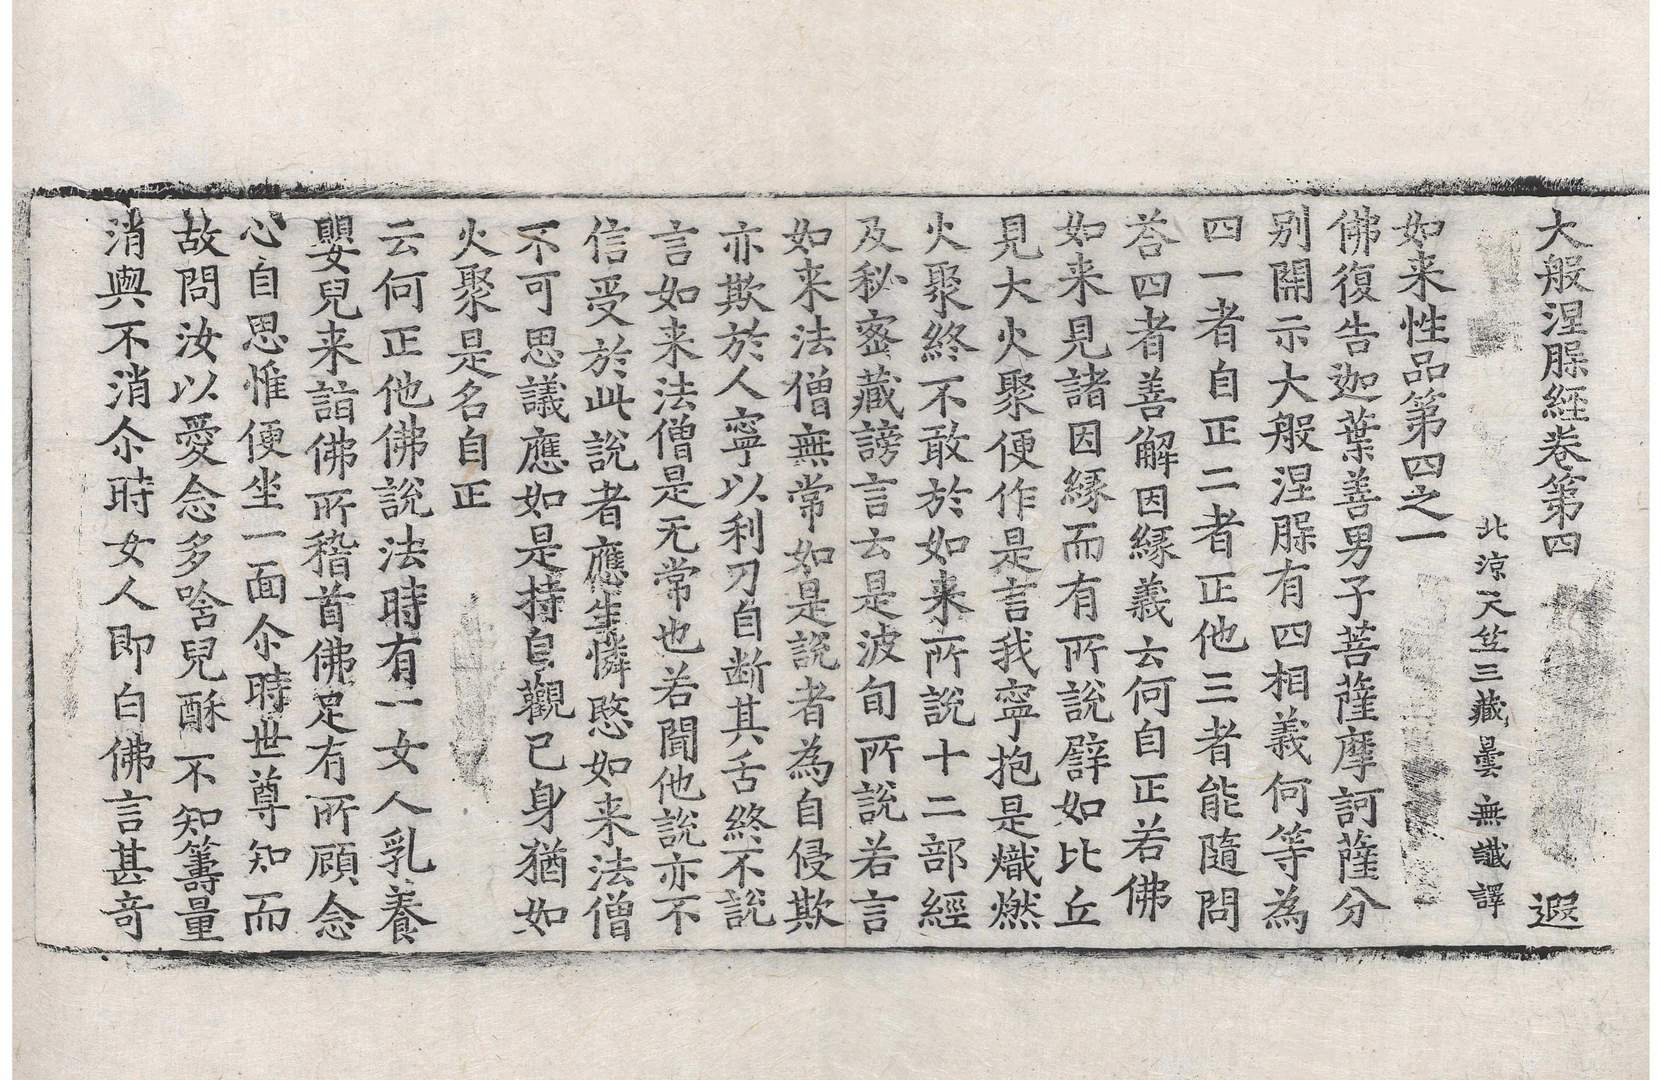 大般涅槃經卷第四　遐
北涼天竺三藏曇無讖譯
如来性品第四之一
佛復告迦葉善男子菩薩摩訶薩分
别開示大般涅槃有四相義何等為
四一者自正二者正他三者能隨問
荅四者善解因縁義云何自正若佛
如来見諸因縁而有所說譬如比丘
見大火聚便作是言我寧抱是熾燃
火聚終不敢於如来所說十二部經
及秘宻藏謗言云是波旬所說若言
如来法僧無常如是說者為自侵欺
亦欺於人寧以利刀自断其舌終不說
言如来法僧是无常也若聞他說亦不
信受於此說者應生憐愍如来法僧
不可思議應如是持自觀己身猶如
火聚是名自正
云何正他佛說法時有一女人乳養
嬰兒来詣佛所稽首佛足有所顧念
心自思惟便坐一面尒時世尊知而
故問汝以愛念多唅兒酥不知籌量
消與不消尒時女人即白佛言甚竒